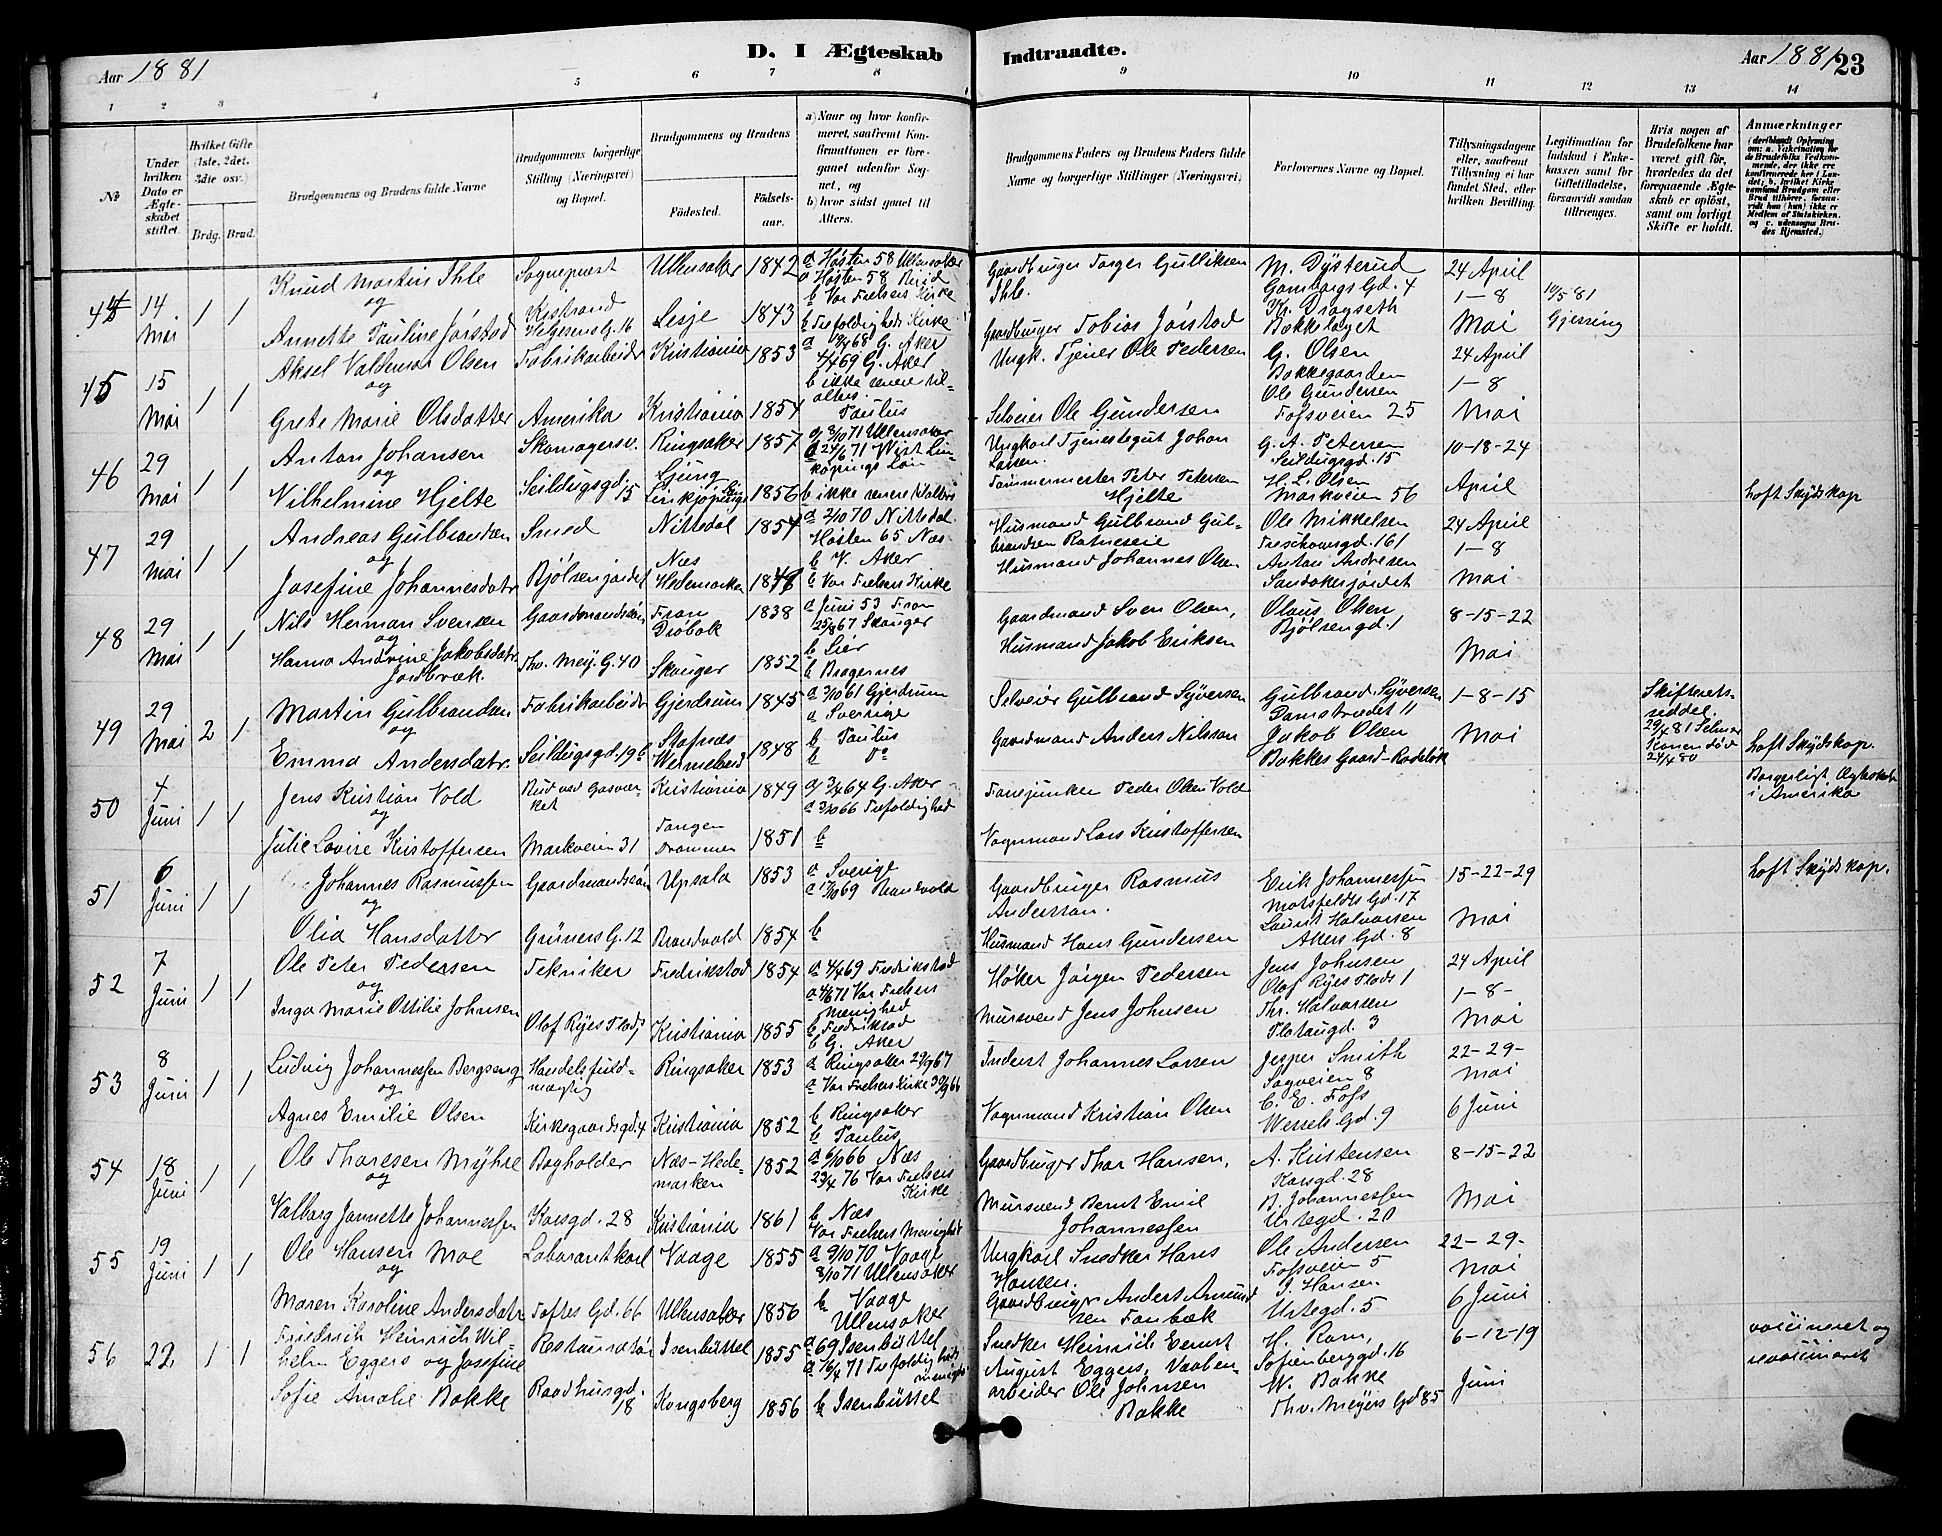 Aar 1881
D. I Ægteskab Indtraadte.
Aar 1881
23
1 2 3 4 5 6 7 8 9 10 11 12 13 14
No
Under hvilken Dato er Ægteskabet stiftet.
Hvilket Gifte (1ste, 2det, 3die osv.)
Brdg. Brud.
Brudgommens og Brudens fulde Navne
Brudgommens borgerlige Stilling (Næringsvei) og Bopæl.
Brudgommens og Brudens
Fødested.
Fødselsaar.
a) Naar og hvor konfirmeret, saafremt Konfirmationen er foregaaet udenfor Sognet, og
b) hvor sidst gaaet til Alters.
Brudgommens Faders og Brudens Faders fulde Navne og borgerlige Stillinger (Næringsvei)
Forlovernes Navne og Bopæl.
Tillysningsdagene eller, saafremt Tillysning ei har fundet Sted, efter hvilken Bevilling.
Legitimation for Indskud i Enkekassen samt for Giftetilladelse, forsaavidt saadan tiltrænges.
Hvis nogen af Brudefolkene har været gift før, hvorledes da det foregaaende Ægteskab er opløst, samt om lovligt Skifte er holdt.
Anmærkninger
44 14 Mai 1 1 Knud Martin Ihle Sognepræst Ullensaker 1842 a Høsten 58 Ullensaker
og Kistrand a Høsten 58 Birid
Annette Pauline Jørstad Helgesens G. 16 Lesje 1843 b Vor Frelsers Kirke
b Trefoldigheds Kirke
Gaardbruger Torger Gulliksen Ihle. M. Dysterud 24 April
Gaardbruger Tobias Jørstad Kr. Dragseth Bakkelaget 1-8 Mai 10/5 81 Gjessing
45 15 Mai 1 1 Aksel Valdemar Olsen Fabrikarbeider Kristiania 1853 G. Aker
og 4/4 69 G. Aker
Grete Marie Olsdatter Amerika Kristiania 1854 b ikke senere til alters. Paulus
Ungk. Tjener Ole Pedersen G. Olsen Bakkegaarden 24 April
Selveier Ole Gundersen Ole Gundersen Fossveien 25 1-8 Mai
46 29 Mai 1 1 Anton Johansen Skomagersv. Ringsaker 1857 a 8/10 71 Ullensaker
og Ljung
Vilhelmine Hjelte Seildugsgd. 15 Linkjøpings 1856 b ikke senere
Ungkarl Tjenestegut Johan Larsen. G. A. Petersen Seildugsgd. 15 10-18-24
Tømmermester Peter Petersen Hjelte H. L. Olsen Markveien 56 April
Løft Skydskap
47 29 Mai 1 1 Andreas Gulbrandsen Smed Nittedal 1854 a 2/10 70 Nittedal
og Næs Høsten 65 Næs
Josefine Johannesdatr Bjølsenjordet Hedemarken b V. Aker
b Vor Frelsers Kirke
Husmand Gulbrand Gulbrandsen Ole Mikkelsen 24 April
Husmand Johannes Olsen Anton Andresen Sandakerjordet 1-8 Mai
48 29 Mai 1 1 Nils Herman Svensen Gaardmandssøn Fron Drøbak 1838 a Juni 53 Fron
og 25/8 67 Skauger
Hanna Andrine Jakobsdatr. Jordbræk. Thv. Mey. G. 40 Skauger 1852 b Lier
b Bragernes
Gaardmand Sven Olsen, Olaus Olsen 8-15-22
Husmand Jakob Eriksen Bjølsengd. 1 Mai
49 29 Mai 2 1 Martin Gulbrandsen Fabrikarbeider Gjerdrum 1845 a 3/10 61 Gjerdrum
og a Sverige
Emma Andersdatr. Seildugsgd. 19b Stafnæs Wermeland 1848 b Paulus
b Do
Selveier Gulbrand Syversen Gulbrand Syversen Damstrædet 11 1-8-15
Gaardmand Anders Nilsson Jakob Olsen Bakkes Gaard-Rodeløk Mai
Skifterets seddel.
Løft Skydskap.
50 4 Juni 1 1 Jens Kristian Vold Kristiania 1849 a 3/4 64 G. Aker
og a 3/10 66 Trefoldighed
Julie Lovise Kristoffersen Markveien 31 Tangen Drammen 1851 b
Fanejunker Peder Olsen Vold
Vognmand Lars Kristoffersen
Borgerligt Ægteskab i Amerika
51 6 Juni 1 1 Johannes Rasmussen Gaardmandssøn Upsala 1853 a Sverige
og a 17/10 69 Brandvold
Olia Hansdatter Grüners G. 12 Brandvold 1854 b
Gaardbruger Rasmus Anderssøn. Erik Johannessen Motzfeldts Gd. 17 15-22-29
Husmand Hans Gundersen Laurits Halvorsen Akers Gd. 8 Mai
Løft Skydskap.
52 7 Juni 1 1 Ole Peter Pedersen Tekniker Fredrikstad 1854 a 4/4 69 Fredrikstad
og a 4/6 71 Vor Frelsers Menighed
Inga Marie Ottilie Johnsen Olaf Ryes Plads 1 Kristiania 1855 b Fredrikstad
b G. Aker
Høker Jørgen Pedersen Jens Johnsen Olaf Ryes Plads 1 24 April
Mursvend Jens Johnsen Thr. Halvorsen Platougd. 3 1-8- Mai
53 8 Juni 1 1 Ludvig Johannessen Bergseng Handelsfuldmægtig Ringsaker 1853 a Ringsaker 29/9 67
og a Vor Frelsers Kirke 30/9 66
Agnes Emilie Olsen Kirkegaardsgd. 4 Kristiania 1852 b Ringsaker
b Paulus
Inderst Johannes Larsen Jesper Smith Sagveien 8 22-29- Mai
Vognmand Kristian Olsen C. E. Foss Wessels Gd. 9 6 Juni
54 18 Juni 1 1 Ole Thoresen Myhre Bogholder Næs-Hedemarken 1852 a 6/10 66 Næs
og 23/4 76 Vor Frelsers Kirke
Valborg Jannette Johannessen Korsgd. 28 Kristiania 1861 b Næs
Vor Frelsers Menighed
Gaardbruger Thor Hansen, A. Kristensen Korsgd. 28 8-15-22
Mursvend Bernt Emil Johannessen B. Johannessen Urtegd. 20 Mai
55 19 Juni 1 1 Ole Hansen Moe Laborantkarl Vaage 1855 a 9/10 70 Vaage
og 8/10 71 Ullensaker
Maren Karoline Andersdatr Toftes Gd. 66 Ullensaker 1856 b Vaage
Ullensaker
Ungkarl Snedker Hans Hansen. Ole Andersen Fossveien 5 22-29- Mai
Gaardbruger Anders Amundsen Fonbæk J. Hansen Urtegd. 5 6 Juni
56 22. 1 1 Friedrich Heinrich Wilhelm Eggers og Josefine Restauratør Isenbüttel 1855 a 69 Isenbüttel
a 16/4 71 Trefoldigheds menighed
Sofie Amalie Bakke Raadhusgd. 18 Kongsberg 1856 b Isenbüttel
Snedker Heinrich Ernst August Eggers, Vaabenarbeider Ole Johnsen Bakke
H. Ram, Sofienberggd. 16 6-12-19
W. Bakke Thv. Meyers Gd 85 Juni
vaccineret og revaccineret